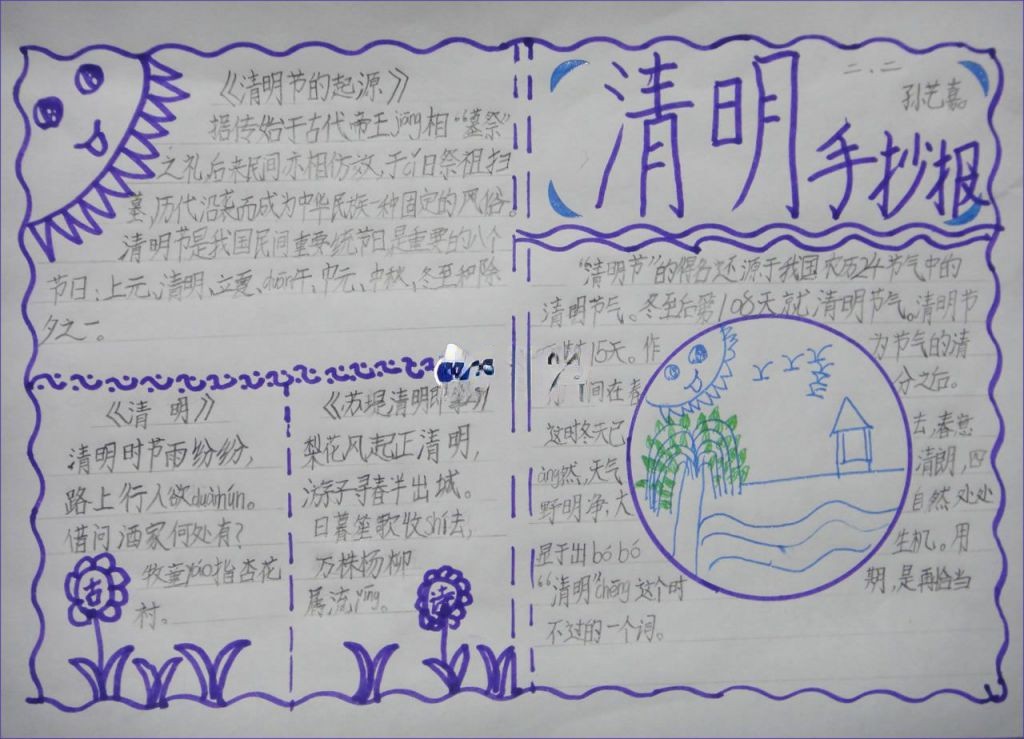 二、二
孙艺嘉
清明
手抄报
《清明节的起源》
据传始于古代帝王jiāng相“墓祭”
之礼，后来民间亦相仿效，于此日祭祖扫
墓，历代沿袭而成为中华民族一种固定的风俗。
清明节是我国民间重要统节日是重要的八个
节日：上元、清明、立夏、duān午、中元、中秋、冬至和除
夕之一。
《清 明》
清明时节雨纷纷，
路上行人欲duànhún。
借问酒家何处有？
牧童yáo指杏花
村。
吉
《苏堤清明即
梨花风起正清明，
游子寻春半出城。
日暮笙歌收shí去，
万株杨柳
属流yīng。
“清明节”的得名还源于我国农历24节气中的
清明节气。冬至后第108天就清明节气。清明节
15天。作 为节气的清
间在春 分之后。
这时冬天已 去，春意
àng然，天气 清朗，四
野明净，大 自然处处
显于出bó bó 生机。用
“清明”chēng这个时 期，是再恰当
不过的一个词。